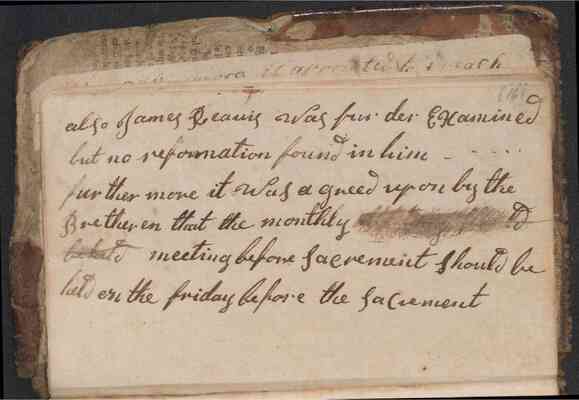 mora it appointed to preach
also James Reavis was fur der Examined
but no reformation found in him - - - -
further more it was a greed upon by the
Bretheren that the monthly
meeting before Sacrement should be
held on the friday before the Sacrement